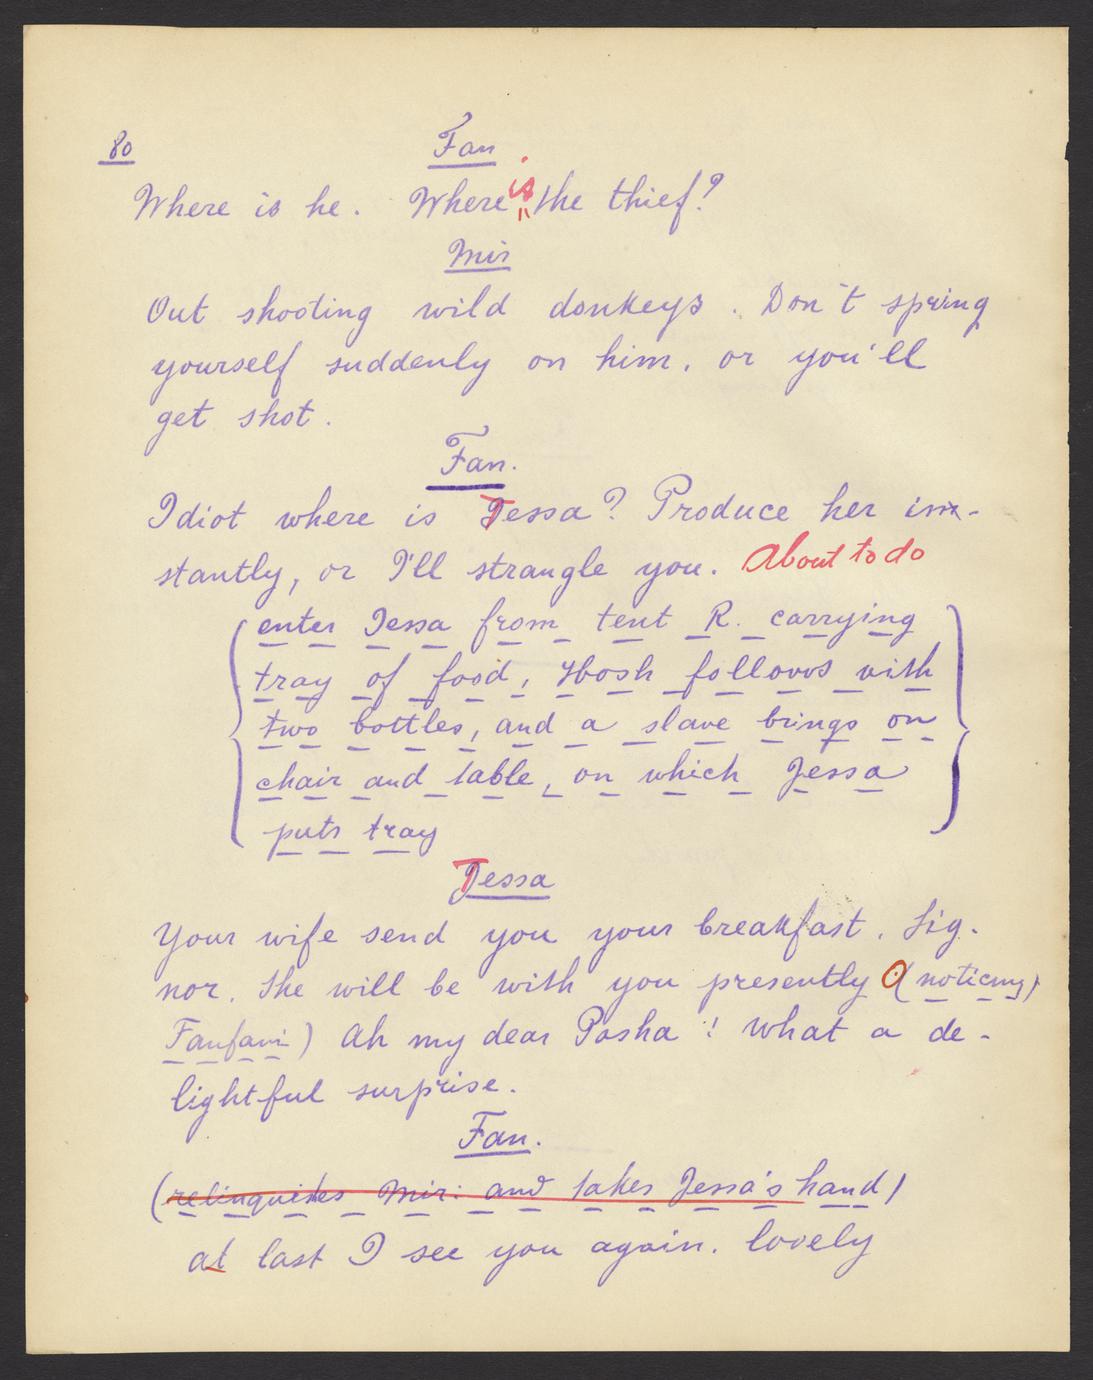 80
Fan
Where is he. Where is the thief?
Mir
Out shooting wild donkeys. Don't spring
yourself suddenly on him, or you'll
get shot.
Fan.
Idiot where is Tessa? Produce her in-
stantly, or I'll strangle you. About to do
enter Jessa from tent R. carrying
tray of food, Hosh follows with
two bottles, and a slave brings on
chair and table, on which Jessa
puts tray
Tessa
Your wife send you your breakfast, Sig-
nor. She will be with you presently (noticing
Fanfani) Ah my dear Pasha! What a de-
lightful surprise.
Fan.
(relinquishes Mir: and takes Jessa's hand)
at last I see you again. lovely